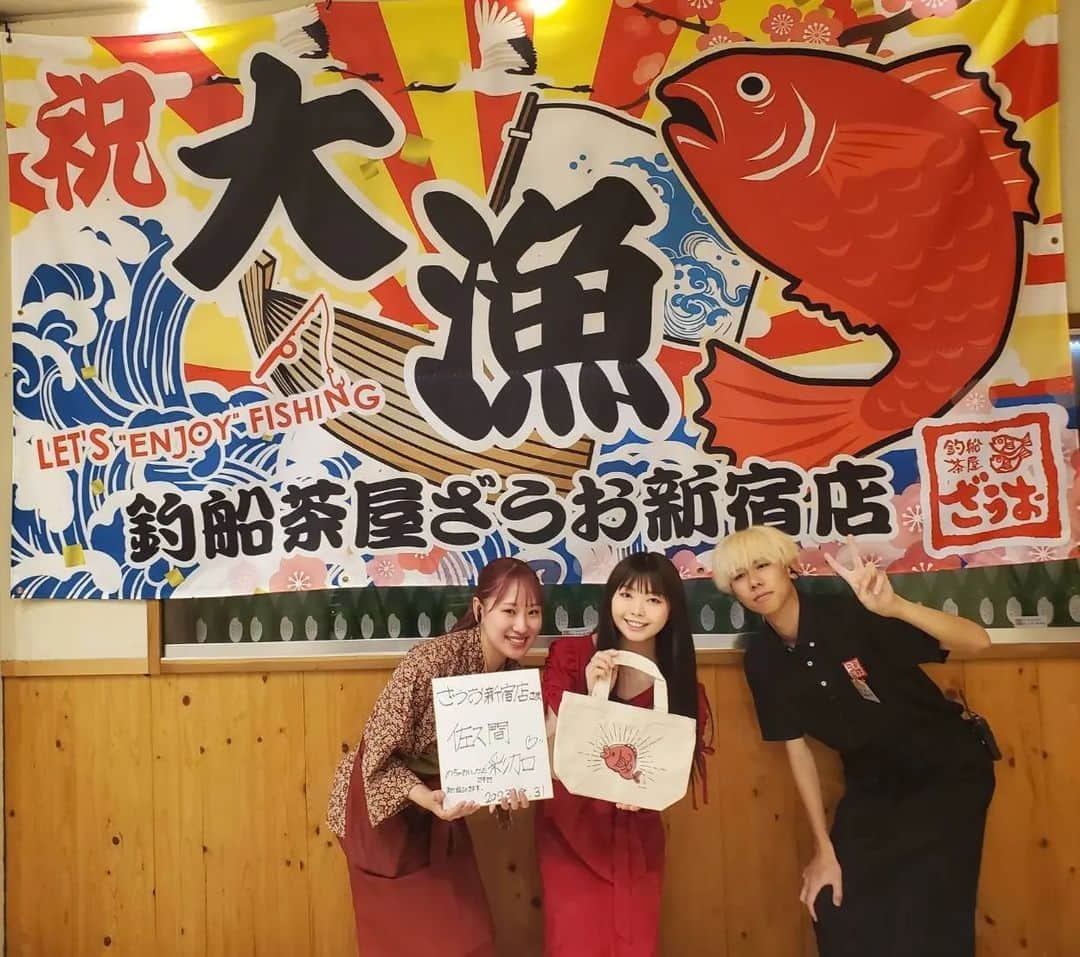 祝
大漁
LET'S "ENJOY" FISHING
釣船茶屋ざうお新宿店
釣船
茶屋
ざうお
ざうお新宿店さん
佐久間
彩加